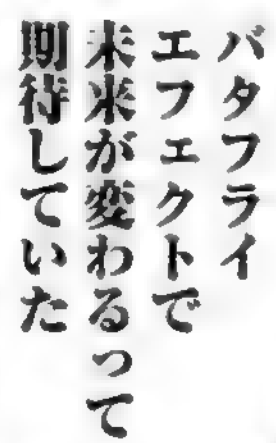 バタフライ
エフェクトで
未来が変わるって
期待していた